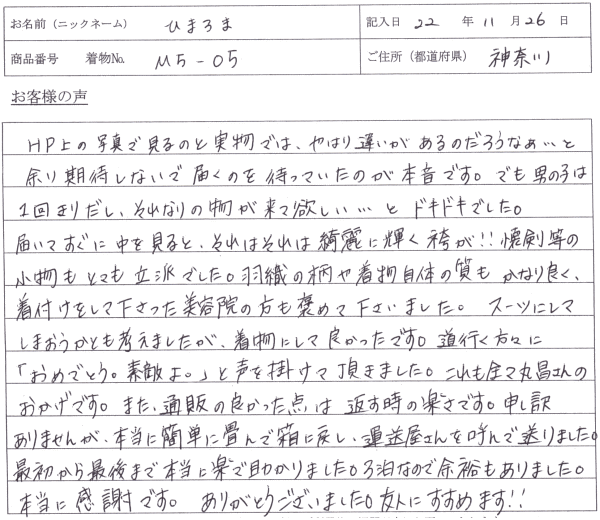 お名前（ニックネーム） ひまろま 記入日 22 年 11 月 26 日
商品番号 着物No. M5-05 ご住所（都道府県） 神奈川
お客様の声
HP上の写真で見るのと実物では、やはり違いがあるのだろうなぁ…と
余り期待しないで届くのを待っていたのが本音です。でも男の子は
1回きりだし、それなりの物が来て欲しい…とドキドキでした。
届いてすぐに中を見ると、それはそれは綺麗に輝く袴が!!懐剣等の
小物もとても立派でした。羽織の柄や着物自体の質もかなり良く、
着付けをして下さった美容院の方も褒めて下さいました。スーツにして
しまおうかとも考えましたが、着物にして良かったです。道行く方々に
「おめでとう。素敵よ。」と声を掛けて頂きました。これも全て丸昌さんの
おかげです。また、通販の良かった点は返す時の楽さです。申し訳
ありませんが、本当に簡単に畳んで箱に戻し、運送屋さんを呼んで送りました。
最初から最後まで本当に楽で助かりました。3泊なので余裕もありました。
本当に感謝です。ありがとうございました。友人にすすめます!!